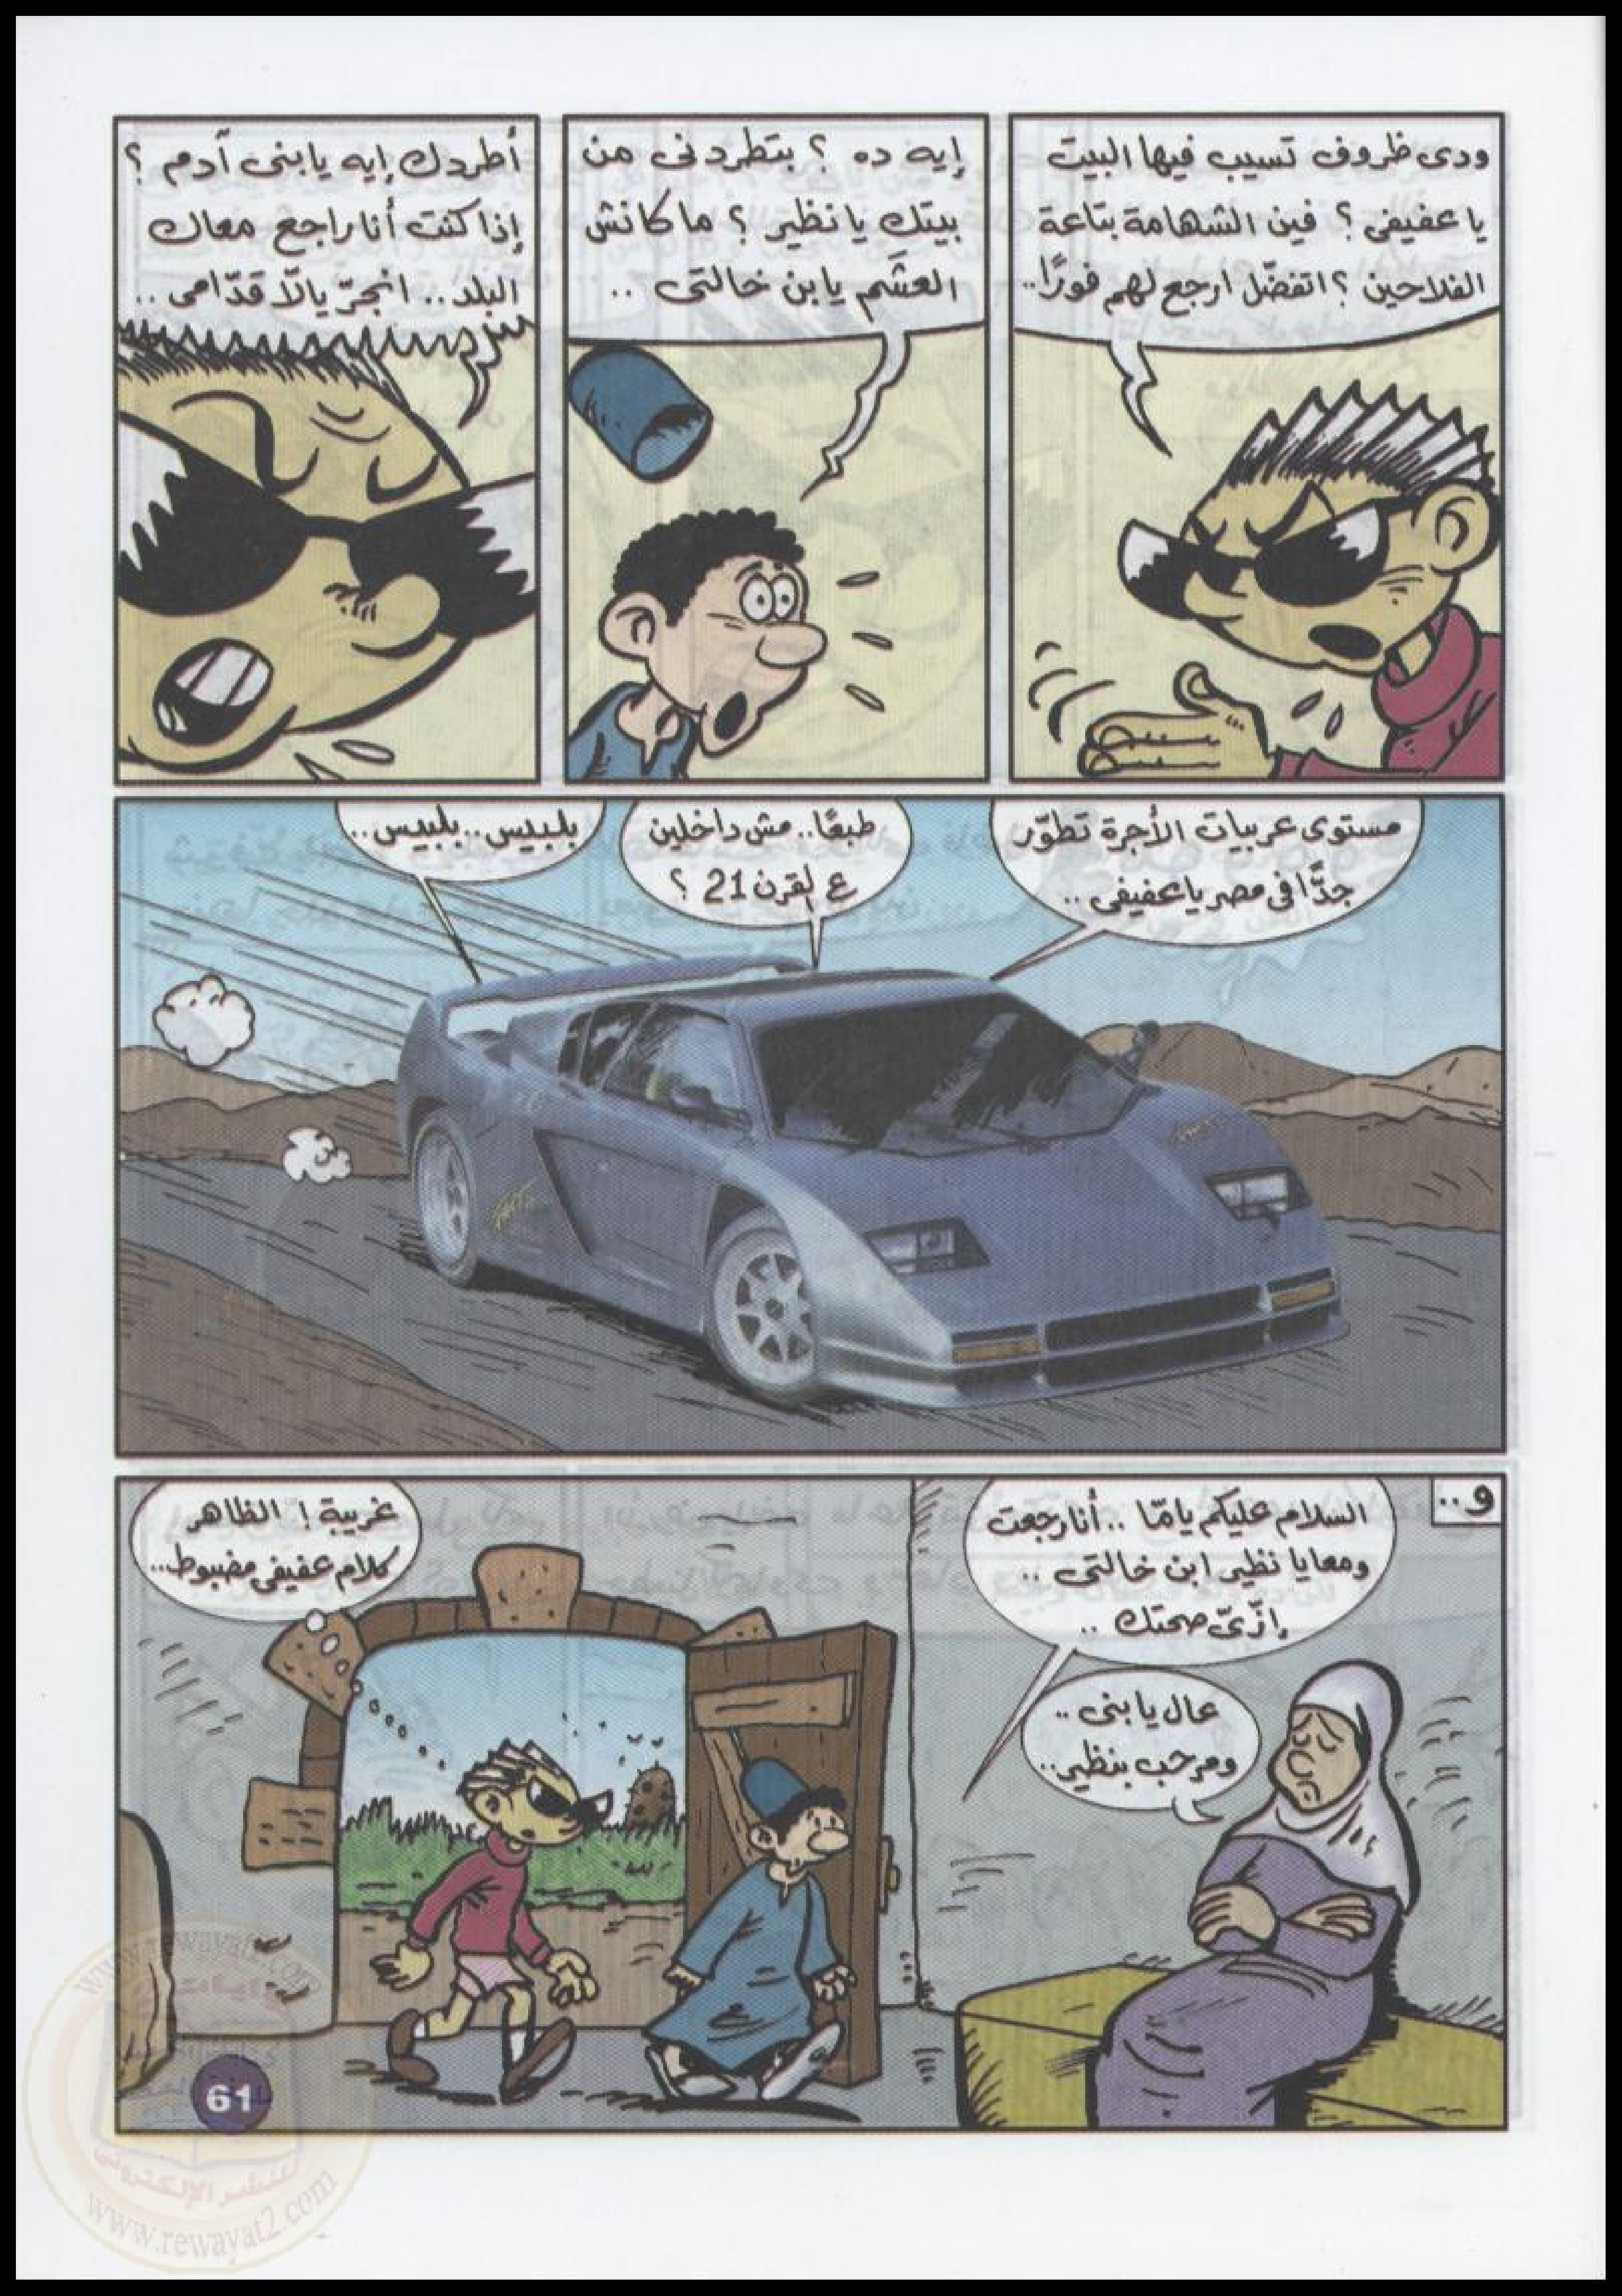 ودى ظروف تسيب فيها البيت
يا عفيفى ؟ فين الشهامة بتاعة
الفلاحين ؟ اتفضّل ارجع لهم فورًا..
إيه ده ؟ بتطردنى من
بيتك يا نظير ؟ ما كانش
العشَم يا بن خالتى ..
أطردك إيه يا بنى آدم ؟
إذا كنت أنا راجع معاك
البلد.. انجرّ يالّا قدّامى ..
مستوى عربيات الأجرة تطوّر
جدًّا فى مصر يا عفيفى ..
طبعًا.. مش داخلين
ع القرن 21 ؟
بلبيس.. بلبيس..
و..
السلام عليكم يامّا .. أنا رجعت
ومعايا نظير ابن خالتى ..
إزّىّ صحتك ..
عال يا بنى ..
ومرحب بنظير..
غريبة ! الظاهر
كلام عفيفى مضبوط..
61
www.rewayat2.com
للنشر الإلكترونى
www.rewayat2.com